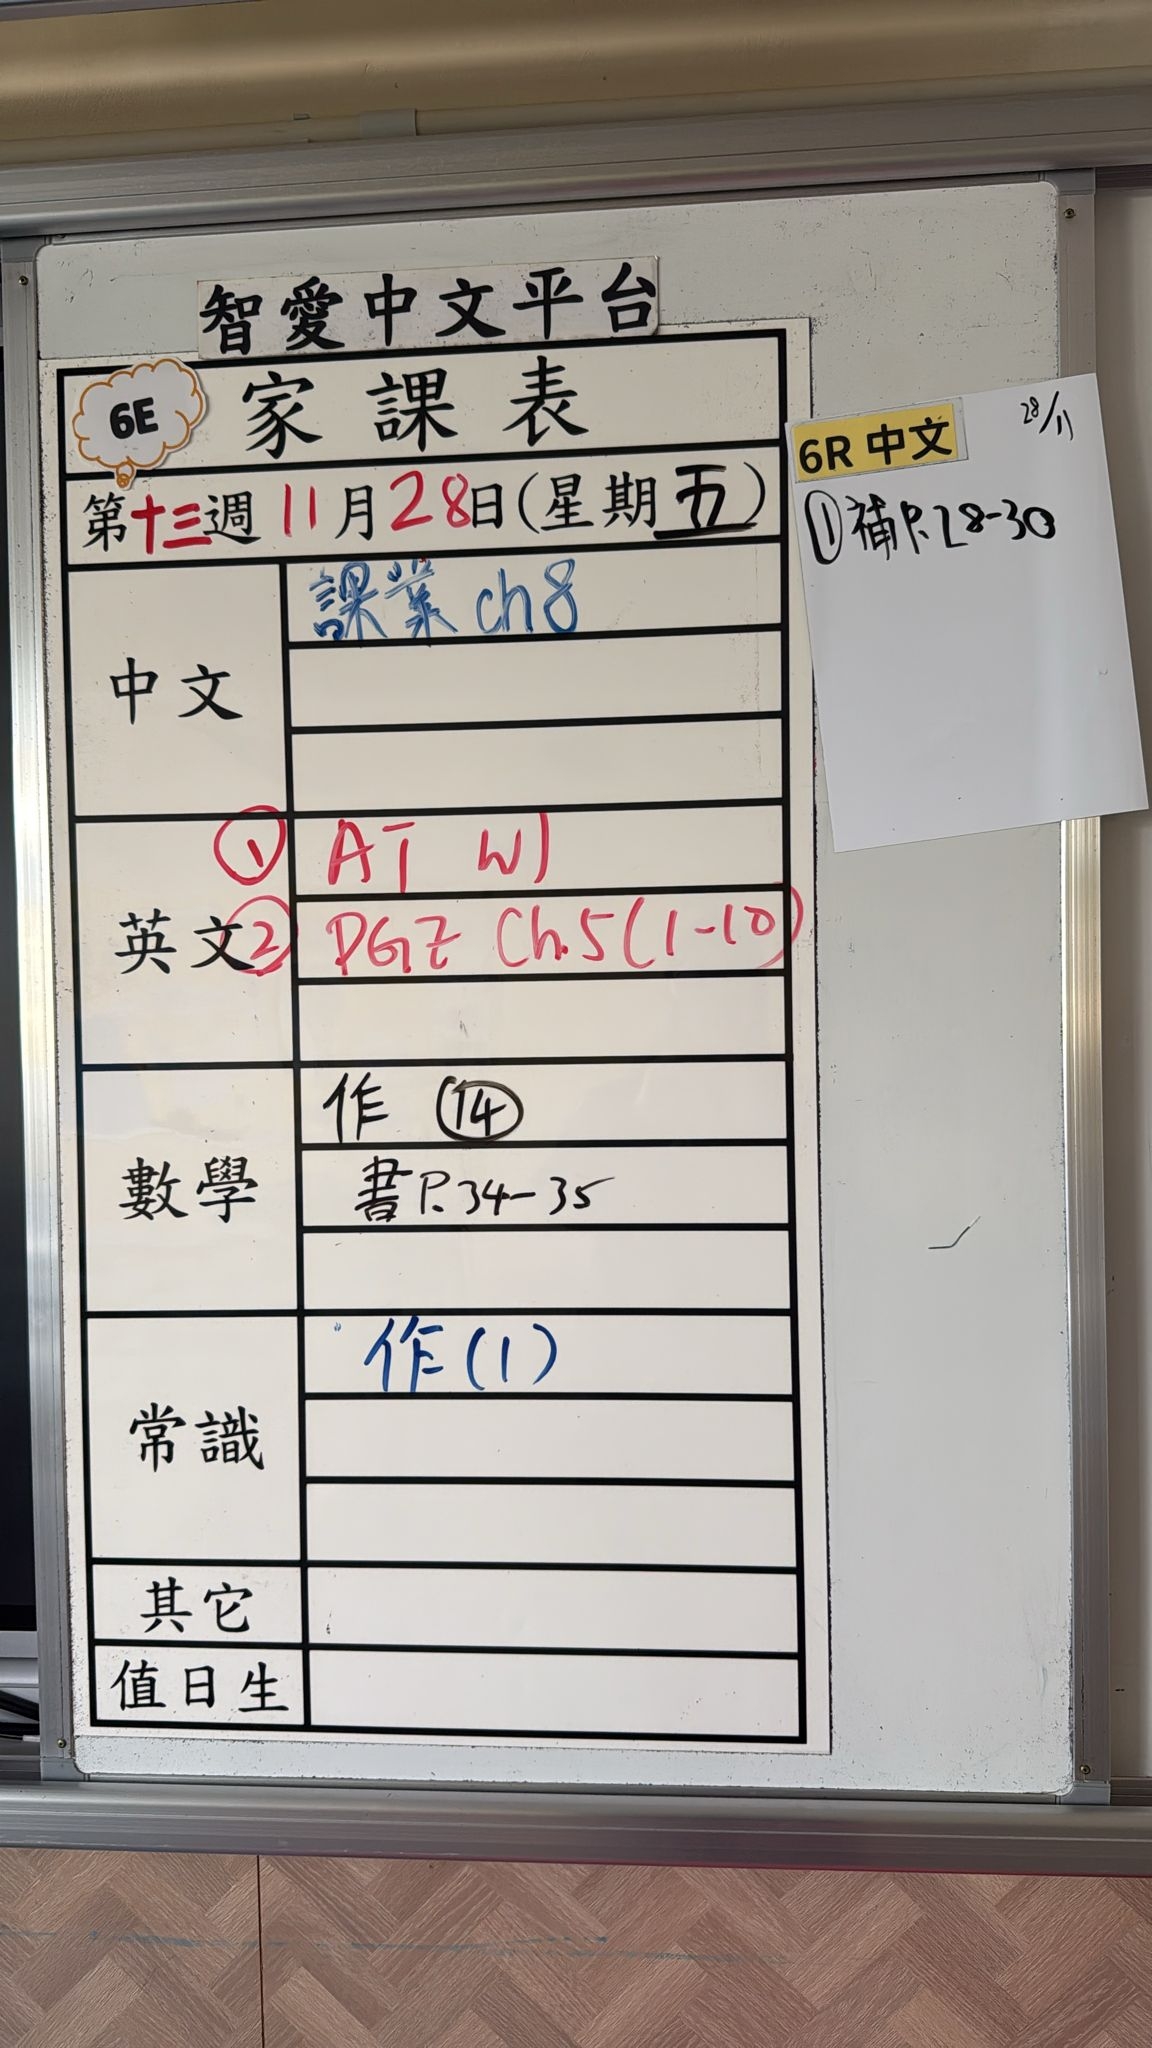 智愛中文平台
6E 家課表
第十三週 11月28日(星期五)
中文
課業 ch8
英文
① AT W1
② PGZ Ch.5(1-10)
數學
作 ⑭
書 P.34-35
常識
作(1)
其它
值日生
6R 中文
28/11
① 補卡 L28-30